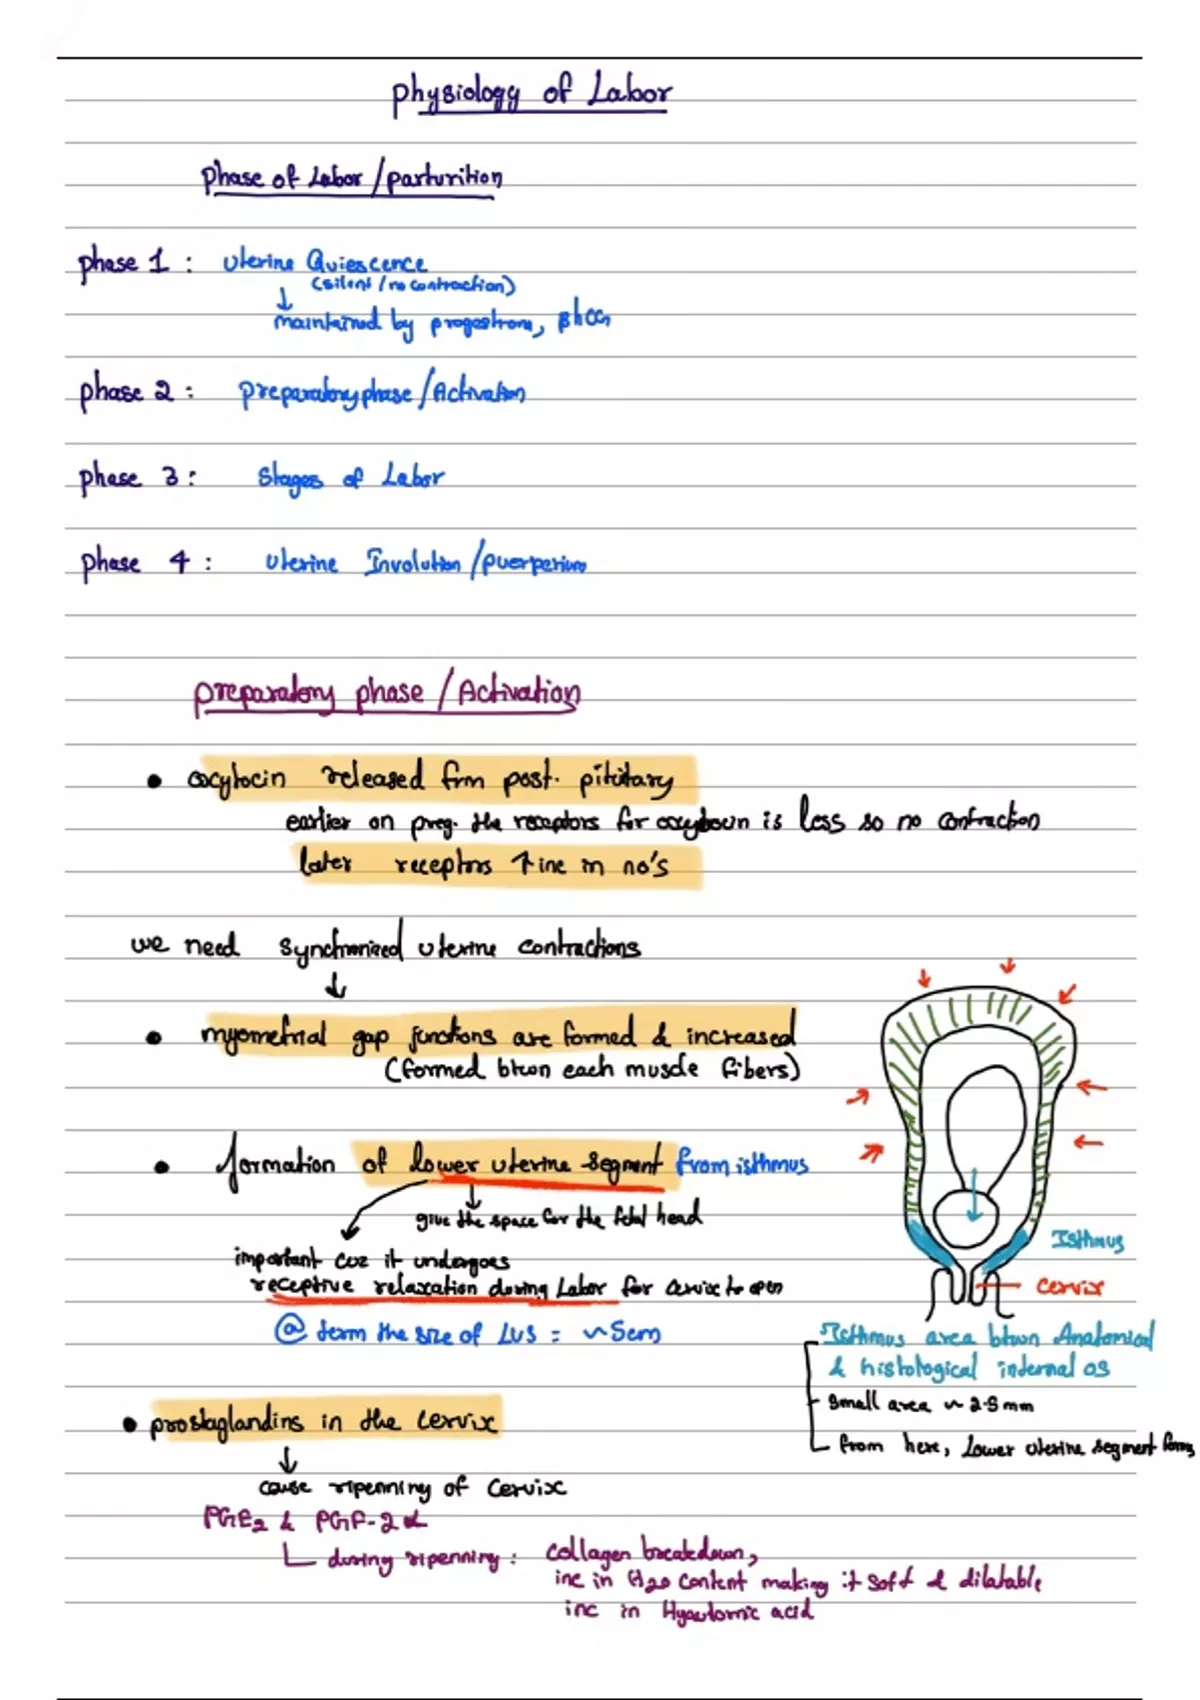 physiology of Labor
phase of Labor / parturition
phase 1 : Uterine Quiescence
(silent / no contraction)
↓
maintained by progestrone, βhCG
phase 2 : preparatory phase / Activation
phase 3 : Stages of Labor
phase 4 : Uterine Involution / puerperium
preparatory phase / Activation
• oxytocin released frm post. pitutary
earlier on preg. the receptors for oxytocin is less so no contraction
later receptors ↑ inc in no's
we need synchronized uterine contractions
↓
• myometrial gap junctions are formed & increased
(formed btwn each muscle fibers)
• formation of lower uterine segment from isthmus
give the space for the fetal head
important coz it undergoes
receptive relaxation during Labor for cervix to open
@ term the size of LUS = ~5cm
Isthmus
cervix
Isthmus area btwn Anatomical
& histological internal os
small area ~ 2.5mm
from here, Lower uterine segment forms
• prostaglandins in the cervix
↓
cause ripenning of cervix
PGE2 & PGF-2α
during ripenning : collagen breakdown,
inc in H2O content making it soft & dilatable
inc in acid